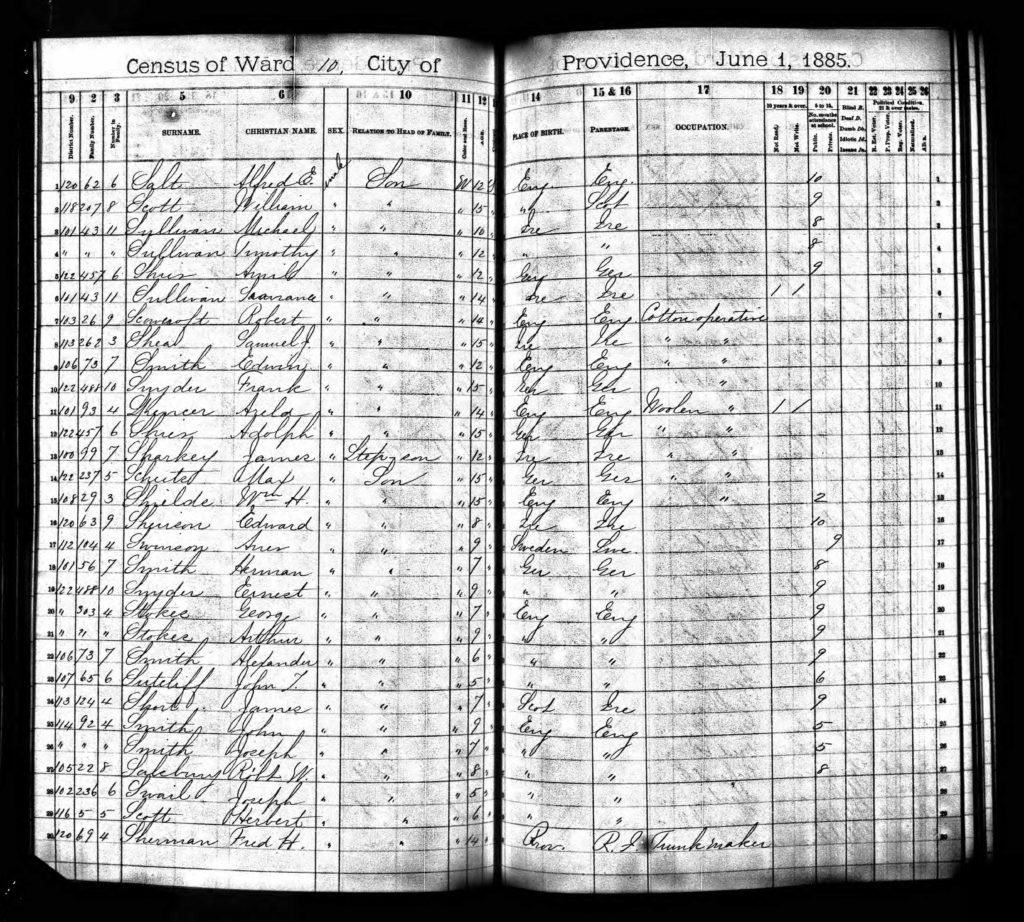 Census of Ward 10, City of Providence, June 1, 1885.
9 2 3 5 6 10 11 12 14 15 & 16 17 18 19 20 21 22 23 24 25 26
District Number. Family Number. Number in Family. SURNAME. CHRISTIAN NAME. SEX. RELATION TO HEAD OF FAMILY. Color and Race. AGE. PLACE OF BIRTH. PARENTAGE. OCCUPATION. 10 years & over. Not Read. Not Write. 5 to 15. No. months attendance at school. Public. Private. Blind B. Deaf D. Dumb Db. Idiotic Id. Insane In. Political Condition. 21 & over males.
1 120 62 6 Salt Alfred E. male Son W 12 S Eng. Eng. 10 1
2 118 207 8 Scott William " " " 15 " " Scot 9 2
3 101 43 11 Sullivan Michael " " " 10 " Ire Ire 8 3
4 " " " Sullivan Timothy " " " 12 " " " 8 4
5 122 457 6 " " " 12 " Eng Ger 9 5
6 101 43 11 Sullivan " " " 14 " Ire Ire 1 1 6
7 103 26 9 Scowcroft Robert " " " 14 " Eng Eng. Cotton operative 7
8 113 262 3 Shea Samuel J. " " " 15 " Ire Ire " " 8
9 106 73 7 Smith Edwin " " " 12 " Eng Eng " " 9
10 122 488 10 Snyder Frank " " " 15 " Ger Ger " " 10
11 101 93 4 Spencer " " " 14 " Eng Eng Woolen " 1 1 11
12 122 457 6 Adolph " " " 15 " Ger Ger " " 12
13 100 99 7 Sharkey James " Step-son " 12 " Ire Ire " " 13
14 122 237 5 Schutet Max " Son " 15 " Ger Ger " " 14
15 108 29 3 Shields Wm H. " " " 15 " Eng Eng " 2 15
16 120 63 9 Edward " " " 8 " Ire Ire 10 16
17 112 104 4 Swenson " " " 9 " Sweden Swe. 9 17
18 101 56 7 Smith Herman " " " 7 " Ger Ger 8 18
19 122 488 10 Snyder Ernest " " " 9 " " " 9 19
20 " 303 4 Stokes George " " " 7 " Eng Eng 9 20
21 " " " Stokes Arthur " " " 9 " " " 9 21
22 106 73 7 Smith Alexander " " " 6 " " " 9 22
23 107 65 6 Sutcliff John T. " " " 5 " " " 6 23
24 113 124 4 Short James " " " 7 " Scot Ire 9 24
25 114 92 4 Smith John " " " 9 " Eng Eng 5 25
26 " " " Smith Joseph " " " 7 " " " 5 26
27 105 22 8 Salsbury Robt W. " " " 8 " " " 8 27
28 102 236 6 Swail Joseph " " " 5 " " " 28
29 116 5 5 Scott Herbert " " " 6 " " " 29
30 120 69 4 Sherman Fred H. " " " 14 " Prov. R.I Trunk maker 30